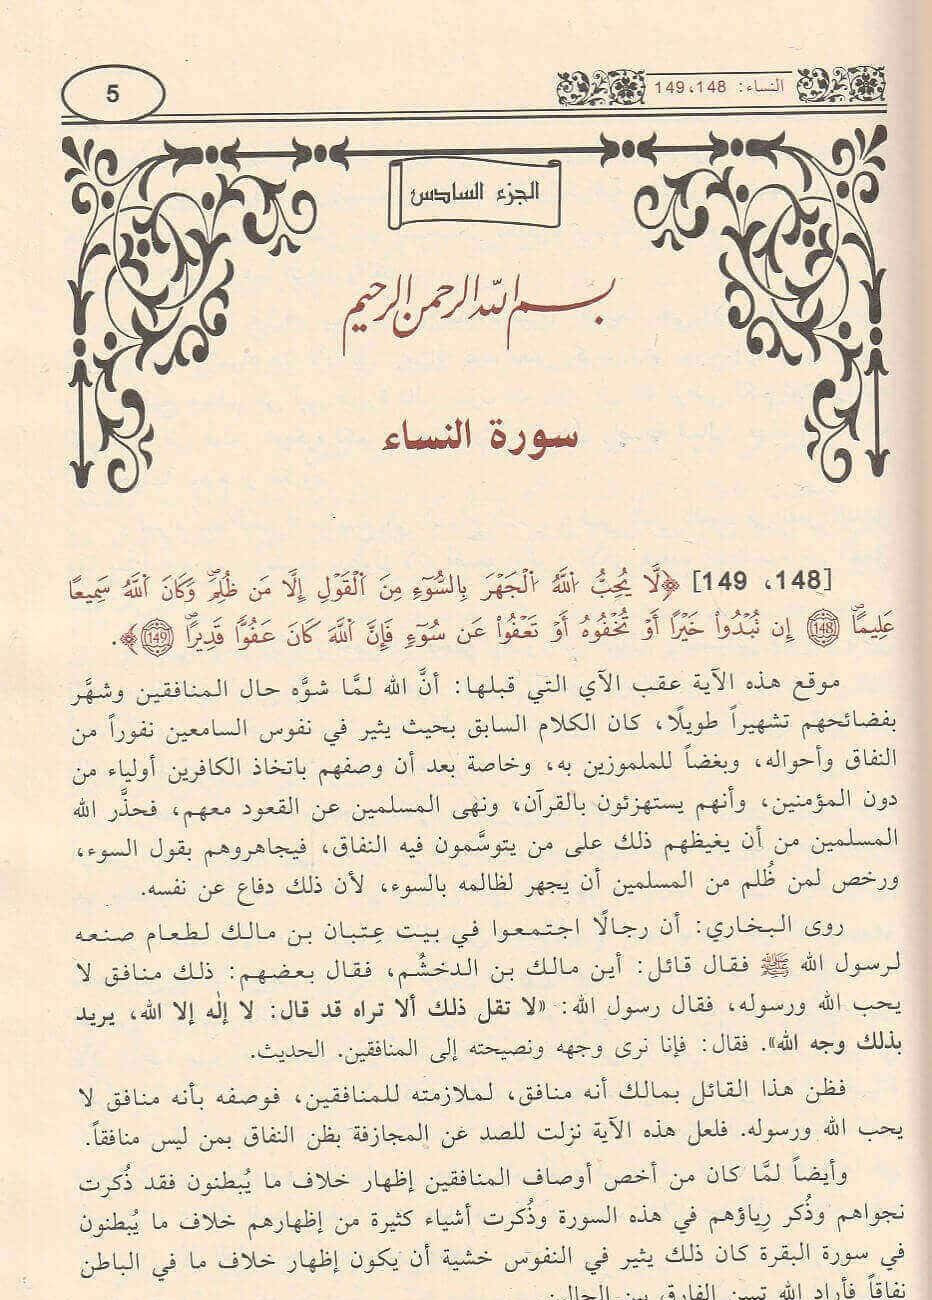 النساء: 148، 149
5
الجزء السادس
بسم الله الرحمن الرحيم
سورة النساء
[148، 149] ﴿لَّا يُحِبُّ اَللَّهُ اُلْجَهْرَ بِالسُّوٓءِ مِنَ اَلْقَوْلِ إِلَّا مَن ظُلِمَۖ وَكَانَ اَللَّهُ سَمِيعًا
عَلِيمًاۖ 148 إِن تُبْدُواْ خَيْرًا أَوْ تُخْفُوهُ أَوْ تَعْفُواْ عَن سُوٓءٍ فَإِنَّ اَللَّهَ كَانَ عَفُوًّا قَدِيرًاۖ 149﴾.
موقع هذه الآية عقب الآي التي قبلها: أنَّ الله لمَّا شوَّه حال المنافقين وشهَّر
بفضائحهم تشهيراً طويلًا، كان الكلام السابق بحيث يثير في نفوس السامعين نفوراً من
النفاق وأحواله، وبغضاً للملموزين به، وخاصة بعد أن وصفهم باتخاذ الكافرين أولياء من
دون المؤمنين، وأنهم يستهزئون بالقرآن، ونهى المسلمين عن القعود معهم، فحذَّر الله
المسلمين من أن يغيظهم ذلك على من يتوسَّمون فيه النفاق، فيجاهروهم بقول السوء،
ورخص لمن ظُلم من المسلمين أن يجهر لظالمه بالسوء، لأن ذلك دفاع عن نفسه.
روى البخاري: أن رجالًا اجتمعوا في بيت عِتبان بن مالك لطعام صنعه
لرسول الله ﷺ فقال قائل: أين مالك بن الدخشُم، فقال بعضهم: ذلك منافق لا
يحب الله ورسوله، فقال رسول الله: «لا تقل ذلك ألا تراه قد قال: لا إلٰه إلا الله، يريد
بذلك وجه الله». فقال: فإنا نرى وجهه ونصيحته إلى المنافقين. الحديث.
فظن هذا القائل بمالك أنه منافق، لملازمته للمنافقين، فوصفه بأنه منافق لا
يحب الله ورسوله. فلعل هذه الآية نزلت للصد عن المجازفة بظن النفاق بمن ليس منافقاً.
وأيضاً لمَّا كان من أخص أوصاف المنافقين إظهار خلاف ما يُبطنون فقد ذُكرت
نجواهم وذُكر رِياؤهم في هذه السورة وذُكرت أشياء كثيرة من إظهارهم خلاف ما يُبطنون
في سورة البقرة كان ذلك يثير في النفوس خشية أن يكون إظهار خلاف ما في الباطن
نفاقاً فأراد الله تبيين الفارق بين الحالين.